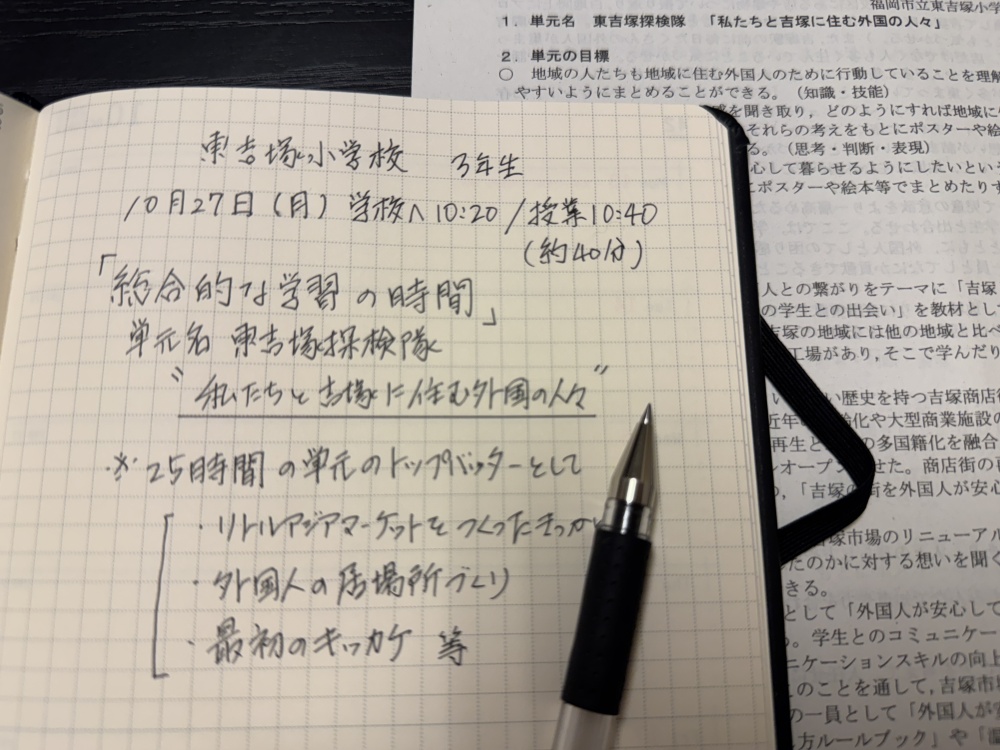 東吉塚小学校 3年生
10月27日(月) 学校へ10:20/授業10:40
(約40分)
「総合的な学習の時間」
単元名 東吉塚探検隊
"私たちと吉塚に住む外国の人々"
※25時間の単元のトップバッターとして
・リトルアジアマーケットをつくったきっか
・外国人の居場所づくり
・最初のキッカケ 等
福岡市立東吉塚小学
1.単元名 東吉塚探検隊 「私たちと吉塚に住む外国の人々」
2.単元の目標
○ 地域の人たちも地域に住む外国人のために行動していることを理解
やすいようにまとめることができる。(知識・技能)
を聞き取り,どのようにすれば地域に
それらの考えをもとにポスターや絵
る。(思考・判断・表現)
心して暮らせるようにしたいという
にポスターや絵本等でまとめたりす
人との繋がりをテーマに「吉塚
の学生との出会い」を教材とし
吉塚の地域には他の地域と比べ
工場があり,そこで学んだり
い歴史を持つ吉塚商店街
近年の 齢化や大型商業施設の
再生と の多国籍化を融合
オープン せた。商店街の
,「吉塚の街を外国人が安心
塚市場のリニューアル
たのかに対する想いを聞く
きる。
として「外国人が安心して
。学生とのコミュニケー
ニケーションスキルの向上
このことを通して,吉塚市場
の一員として「外国人が安
方ルールブック」や「